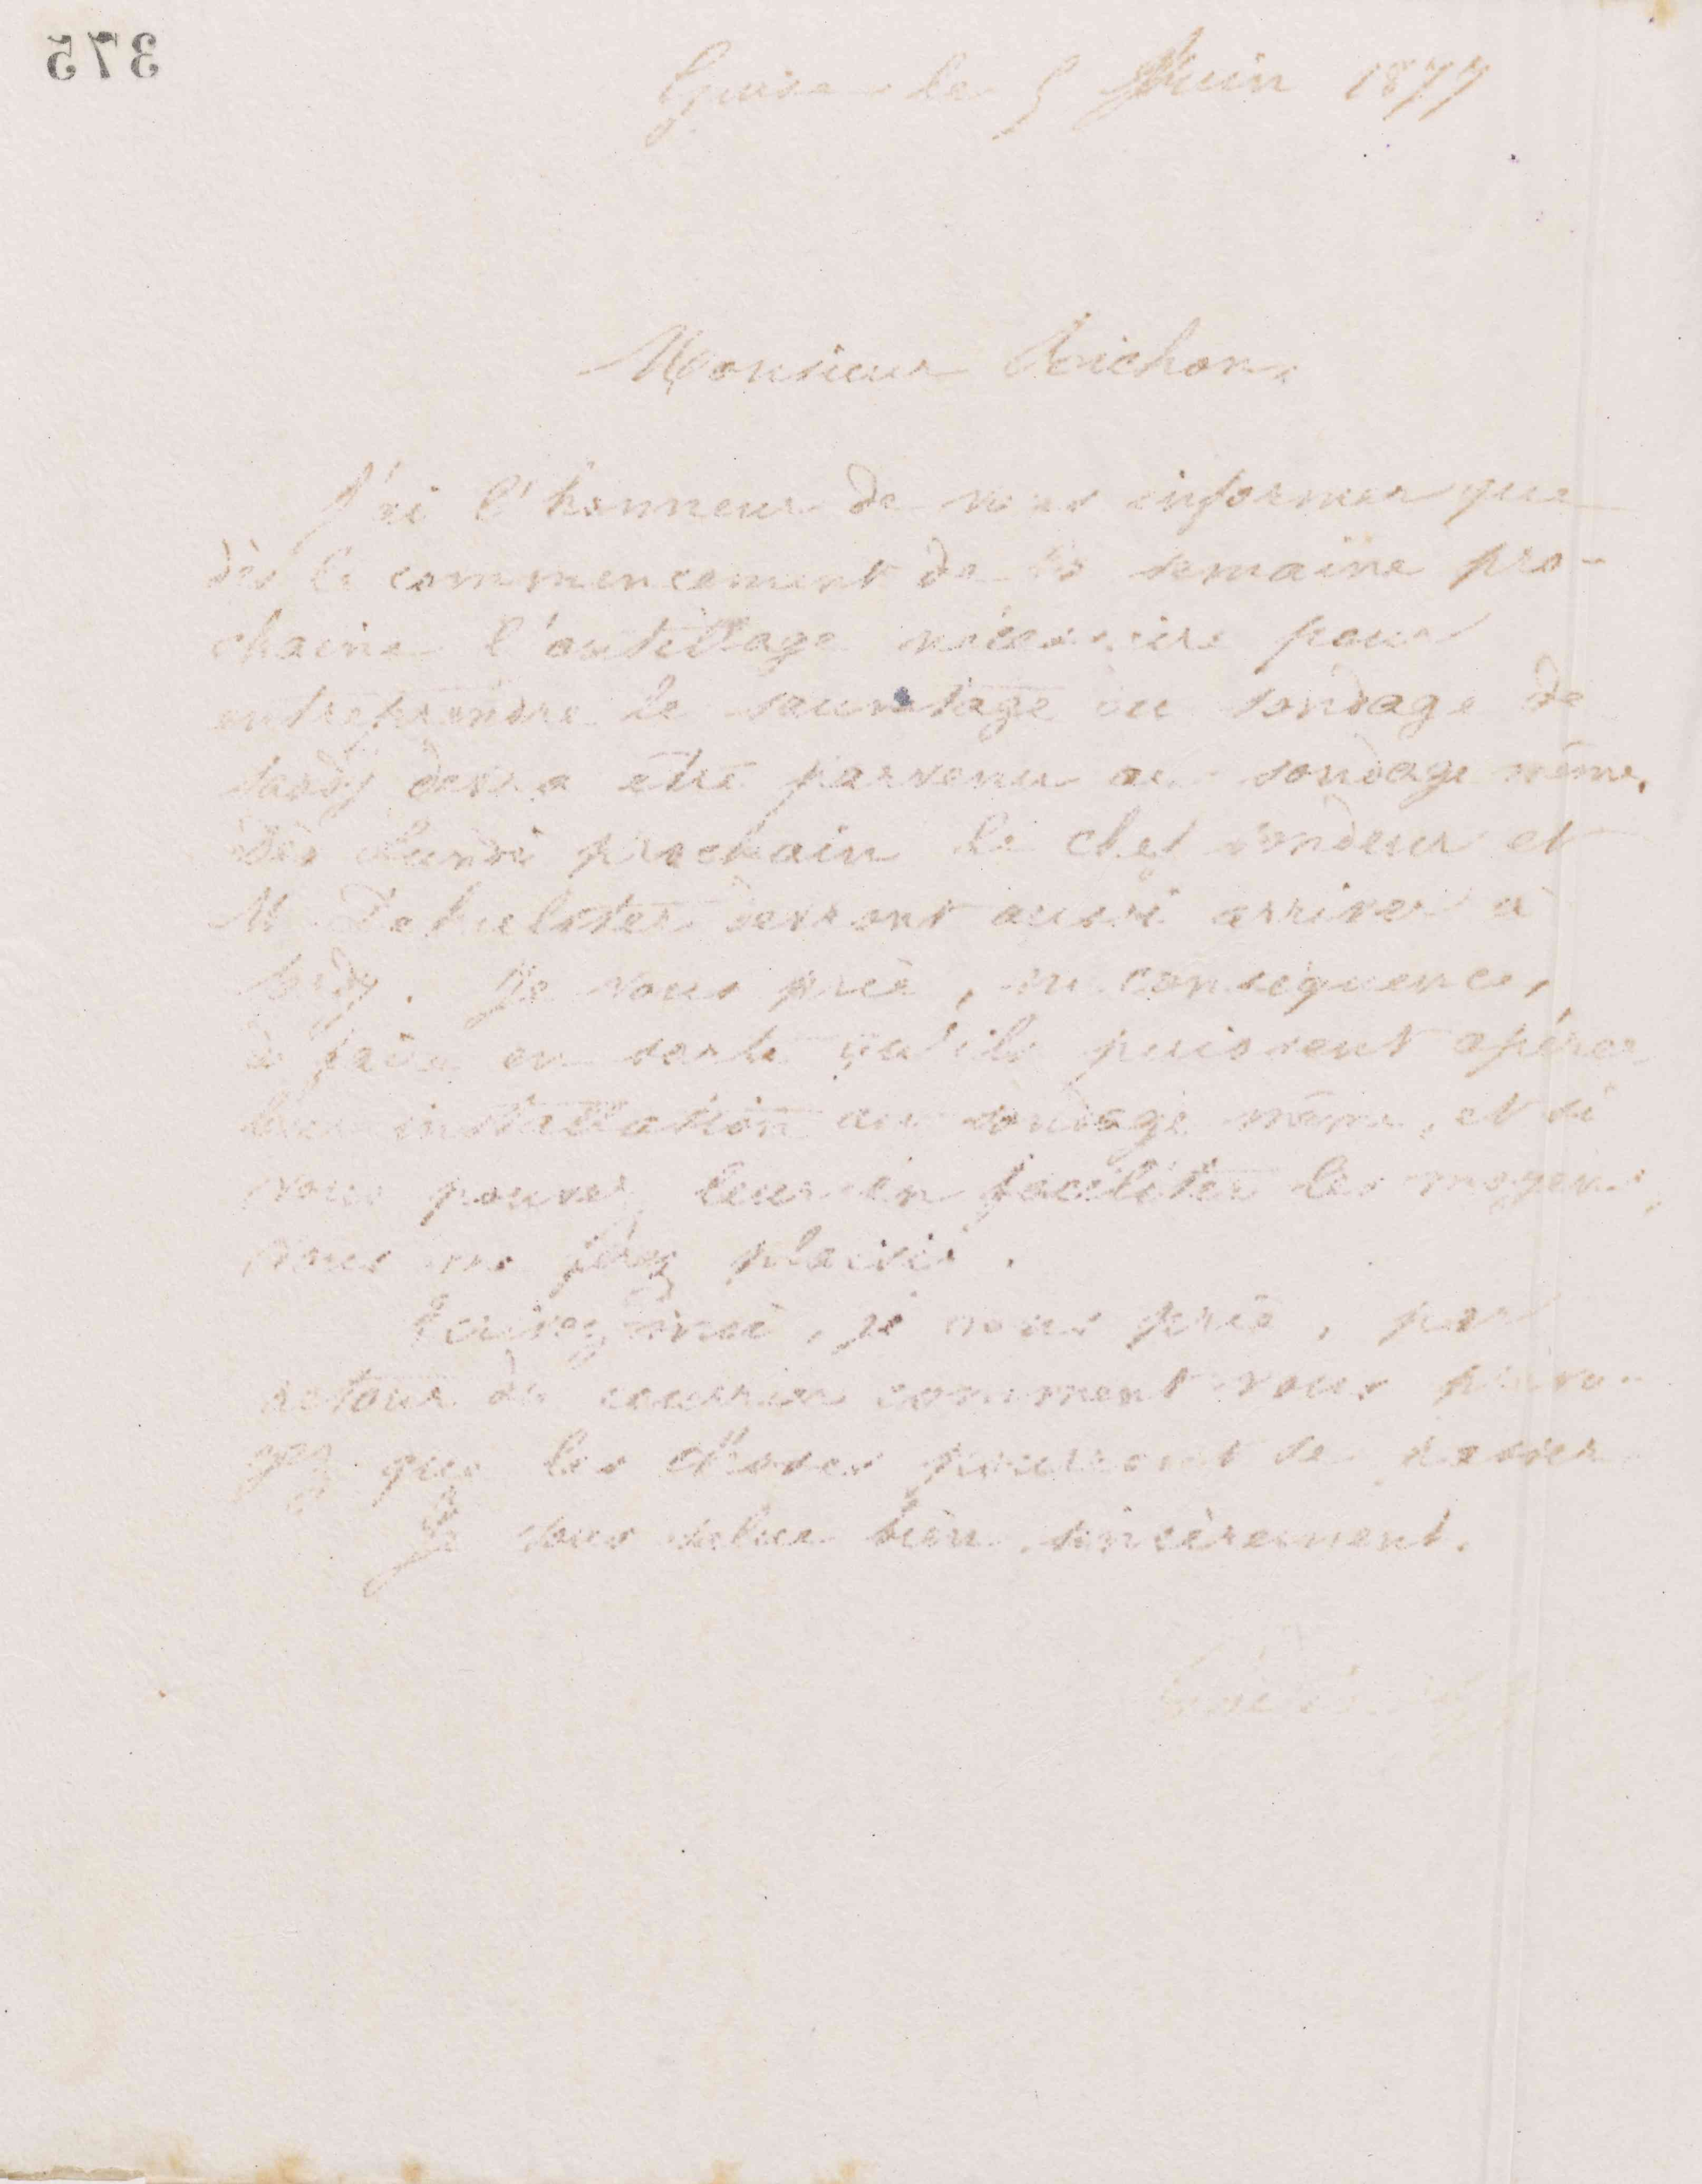 375
Guise le 5 Juin 1877
Monsieur Richon,
J'ai l'honneur de vous informer que
dès le commencement de la semaine pro-
chaine l'outillage nécessaire pour
entreprendre le sauvetage du sondage de
devra être parvenu au sondage même.
Dès lundi prochain le chef sondeur et
M. Dehulster devront aussi arriver à
Je vous prie, en conséquence,
de faire en sorte qu'ils puissent opérer
leur installation au sondage même, et si
vous pouvez leur en faciliter les moyens,
vous me ferez plaisir.
Écrivez moi, je vous prie, par
retour du courrier comment vous pré-
yez que les choses pourront se passer
Je vous salue bien sincèrement.
Godin